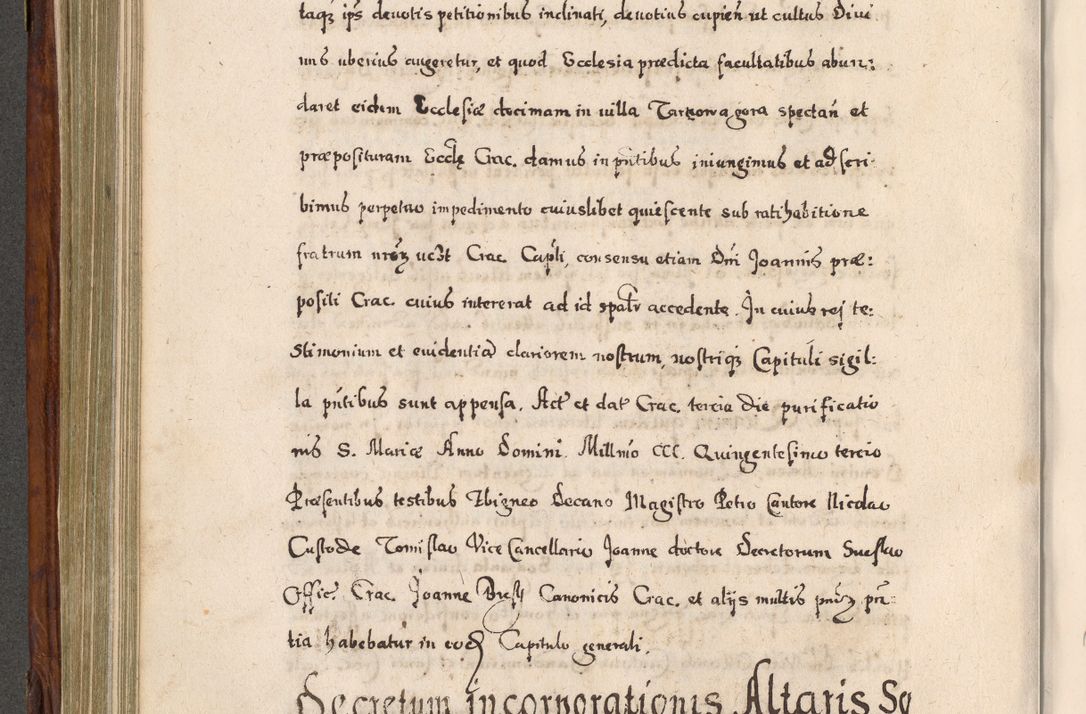 taqz ips devotis petitionibus inclinati, devotius cupień ut cultus Divi
nus uberius augeretur, et quod Ecclesia prædicta facultatibus abun:
daret eidem Ecclesiæ decimam in villa Tarzowagora spectań et
præposituram Eccle Crac. damus in pńtibus iniungimus et adscri-
bimus perpetuo impedimento cuiuslibet quiescente sub ratihabitione
fratrum nrōz Crac. Capli, consensu etiam Dni Joannis præ:
positi Crac. cuius intererat ad id spalr accedente. In cuius rej te:
stimonium et evidentiā clariorem nostrum, nostriqz Capituli sigil:
la pńtibus sunt appensa. Act et dat Crac. tercia die purificatio
nis S. Mariæ Anno Domini Millmo CCC. Quingentesimo tercio
Præsentibus testibus Zbigneo Decano Magistro Petro Cantore Nicolao
Custode Tomislao Vice Cancellario Joanne doctore Decretorum Sueslao
Offic. Crac. Joanne Canonicis Crac. et alijs multis
tia habebatur in eod Capitulo generali.
Decretum incorporationis Altaris So